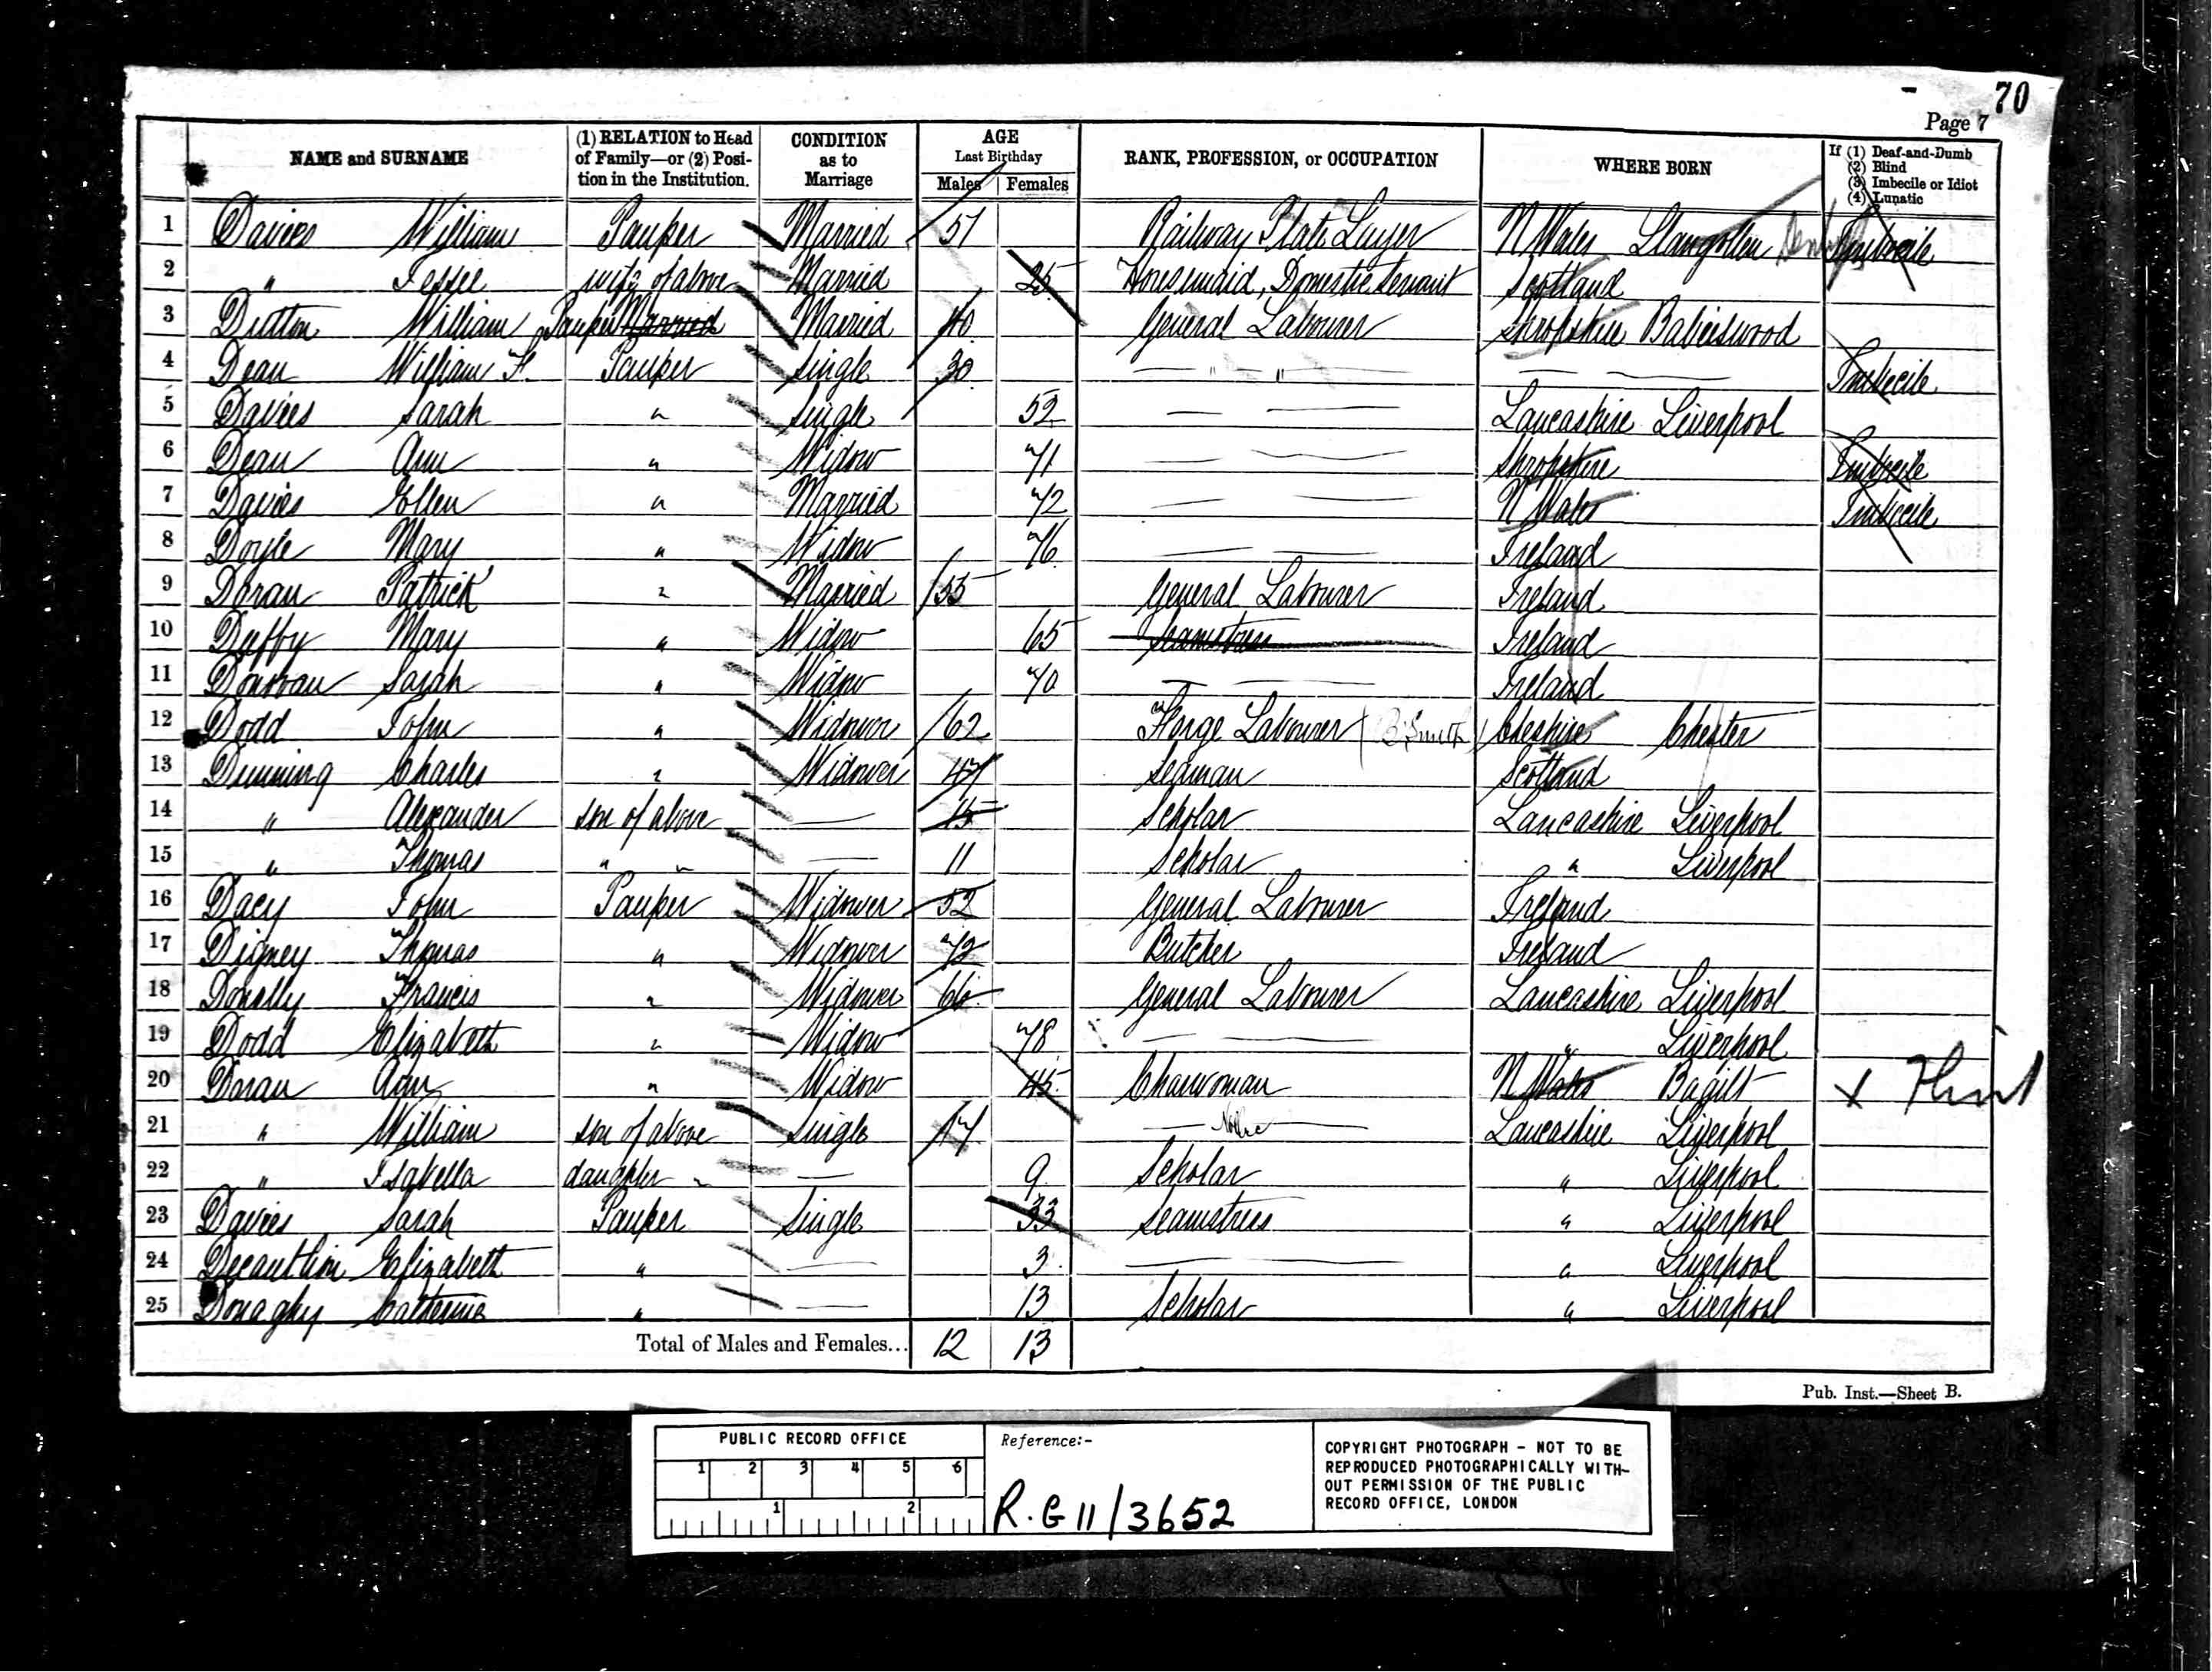 70
Page 7
NAME and SURNAME
(1) RELATION to Head of Family—or (2) Position in the Institution.
CONDITION as to Marriage
AGE Last Birthday
Males Females
RANK, PROFESSION, or OCCUPATION
WHERE BORN
If (1) Deaf-and-Dumb (2) Blind (3) Imbecile or Idiot (4) Lunatic
1 Davies William Pauper Married 51 Railway Plate Layer N Wales Llangollen Imbecile
2 " Jessee wife of above Married 25 Housemaid, Domestic Servant Scotland
3 Dutton William Pauper Married Married 40 General Labourer Shropshire
4 Dean William H. Pauper Single 30 — " — " — — — Imbecile
5 Davies Sarah " Single 52 — — Lancashire Liverpool
6 Dean Ann " Widow 71 — — Shropshire Imbecile
7 Davies Ellen " Married 72 — — N Wales Imbecile
8 Doyle Mary " Widow 76 — — Ireland
9 Doran Patrick " Married 55 General Labourer Ireland
10 Duffy Mary " Widow 65 Seamstress Ireland
11 Donovan Sarah " Widow 70 — — Ireland
12 Dodd John " Widower 62 Forge Labourer (B. Smith) Cheshire Chester
13 Dunning Charles " Widower 47 Seaman Scotland
14 " Alexander son of above — 15 Scholar Lancashire Liverpool
15 " Thomas " " — 11 Scholar " Liverpool
16 Dacy John Pauper Widower 52 General Labourer Ireland
17 Digney Thomas " Widower 72 Butcher Ireland
18 Donolly Francis " Widower 66 General Labourer Lancashire Liverpool
19 Dodd Elizabeth " Widow 78 — " Liverpool
20 Doran Ann " Widow 45 Charwoman N Wales Bagilt x Flint
21 " William son of above Single 17 — — Lancashire Liverpool
22 " Isabella daughter " — 9 Scholar " Liverpool
23 Davies Sarah Pauper Single 33 Seamstress " Liverpool
24 Elizabeth " — 3 — " Liverpool
25 Donaghy Catherine " — 13 Scholar " Liverpool
Total of Males and Females... 12 13
Pub. Inst.—Sheet B.
PUBLIC RECORD OFFICE
1 2 3 4 5 6
1 2
Reference:-
R.G 11/3652
COPYRIGHT PHOTOGRAPH - NOT TO BE
REPRODUCED PHOTOGRAPHICALLY WITH-
OUT PERMISSION OF THE PUBLIC
RECORD OFFICE, LONDON